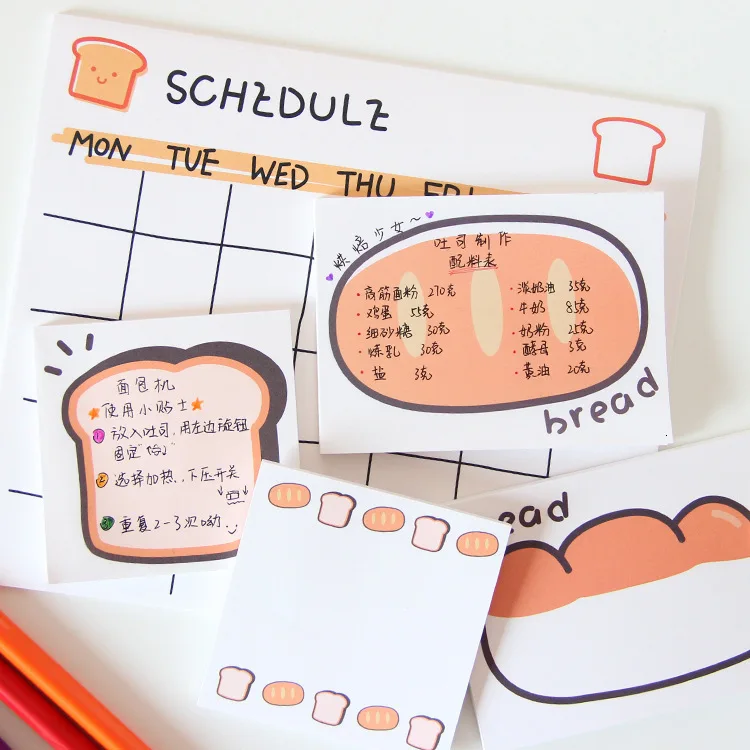 SCHEDULE
MON TUE WED THU FRI
烘焙少女～
吐司制作
配料表
· 高筋面粉 270克
· 鸡蛋 55克
· 细砂糖 30克
· 炼乳 30克
· 盐 3克
· 淡奶油 35克
· 牛奶 85克
· 奶粉 25克
· 酵母 3克
· 黄油 20克
bread
面包机
使用小贴士
① 放入吐司，用左边旋钮
固定
② 选择加热，下压开关
③ 重复2-3次呦
ead